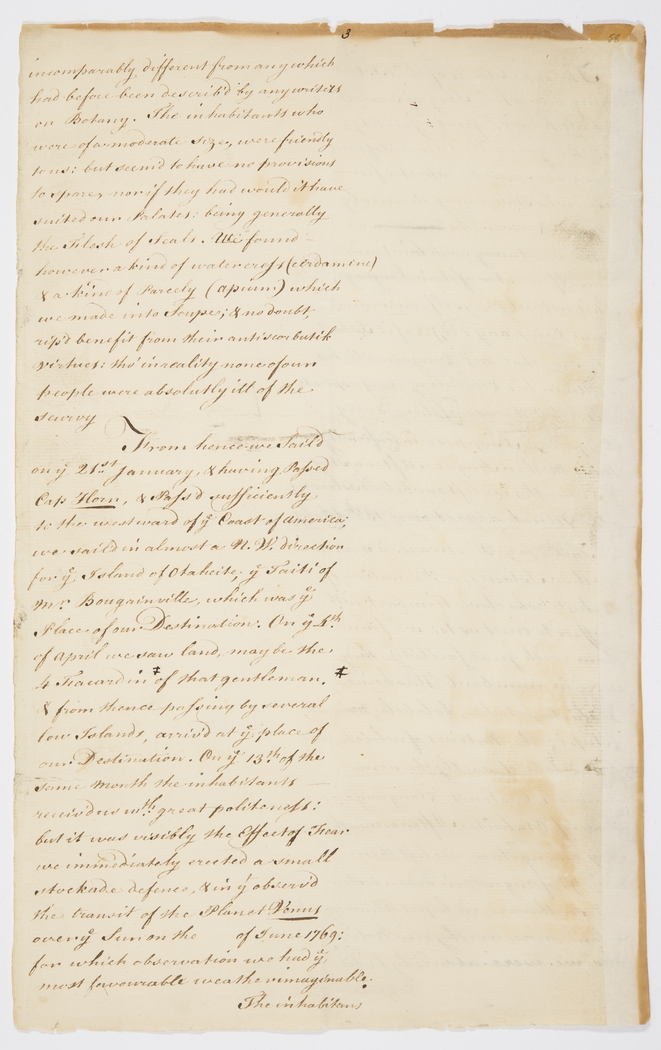 3
58
incomparably different from any which
had before been describ'd by any writers
on Botany. The inhabitants who
were of a moderate size, were friendly
to us: but seem'd to have no provisions
to spare, nor if they had would it have
suited our Palates: being generally
the Flesh of Seals. We found
however a kind of water cress (cardamine)
& a kind of Parcely (apium) which
we made into Soupe; & no doubt
rip'd benefit from their antiscorbutik
virtues: tho' in reality none of our
people were absolutely ill of the
scurvy
From hence we Sail'd
on ye 21st January, & having Passed
Cap Horn, & Pass'd sufficiently
to the westward of ye Coast of America;
we sail'd in almost a N. W. direction
for ye Island of Otaheite, ye Taiti of
Mr. Bougainville, which was ye
Place of our Destination. On ye
of April we saw land, may be the
4 Facardin ‡ of that gentleman. ‡
& from thence passing by several
low Islands, arriv'd at ye place of
our Destination. On ye 13th of the
same month the inhabitants
receiv'd us wth great politeness:
but it was visibly the Effect of Fear
we immediately erected a small
stockade defence, & in yt observ'd
the transit of the Planet Venus
over ye Sun on the of June 1769:
for which observation we had ye
most favourable weather imaginable.
The inhabitans